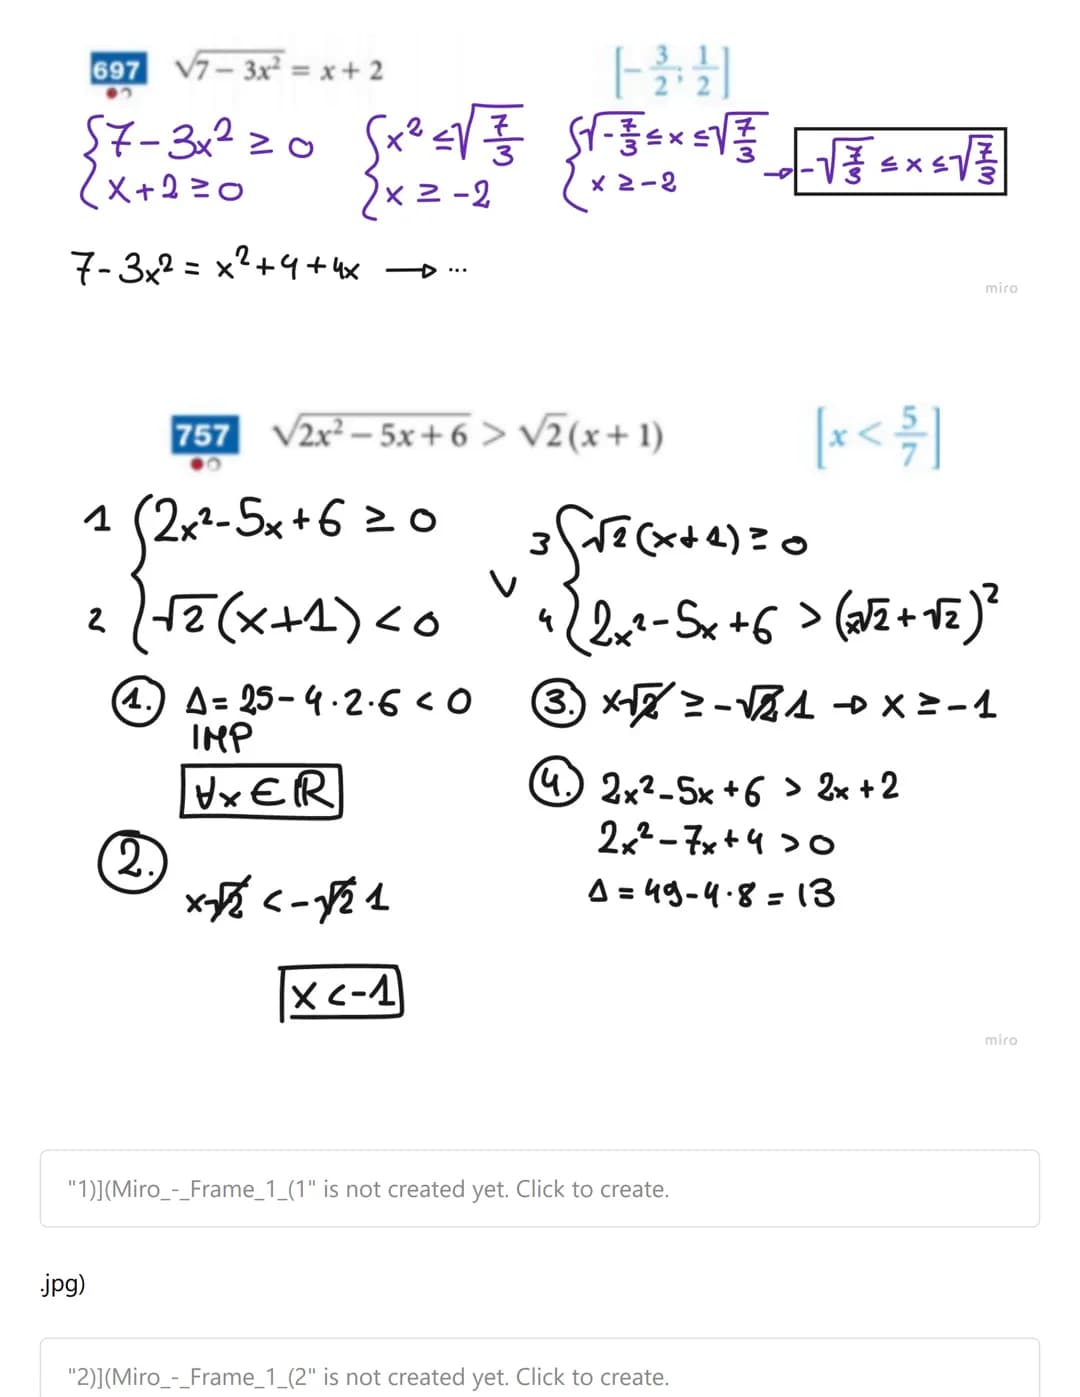 697 √7 – 3x² = x + 2 [–3/2; 1/2]
{7-3x² ≥ 0 {x² ≤ √7/3 {√-7/3 ≤ x ≤ √7/3
x+2 ≥ 0 x ≥ -2 x ≥ -2 → -√7/3 ≤ x ≤ √7/3
7-3x² = x²+4+4x → ...
miro
757 √2x² – 5x + 6 > √2(x + 1) [x < 5/7]
1 {2x²-5x+6 ≥ 0 V 3 {√2(x+1) ≥ 0
2 √2(x+1) < 0 4 2x²-5x+6 > (x√2+√2)²
1. Δ = 25-4·2·6 < 0
IMP
∀x ∈ ℝ
2.
x√2 < -√2 1
x < -1
3. x√2 ≥ -√2 1 → x ≥ -1
4. 2x²-5x+6 > 2x+2
2x²-7x+4 > 0
Δ = 49-4·8 = 13
miro
"1)](Miro_-_Frame_1_(1" is not created yet. Click to create.
.jpg)
"2)](Miro_-_Frame_1_(2" is not created yet. Click to create.